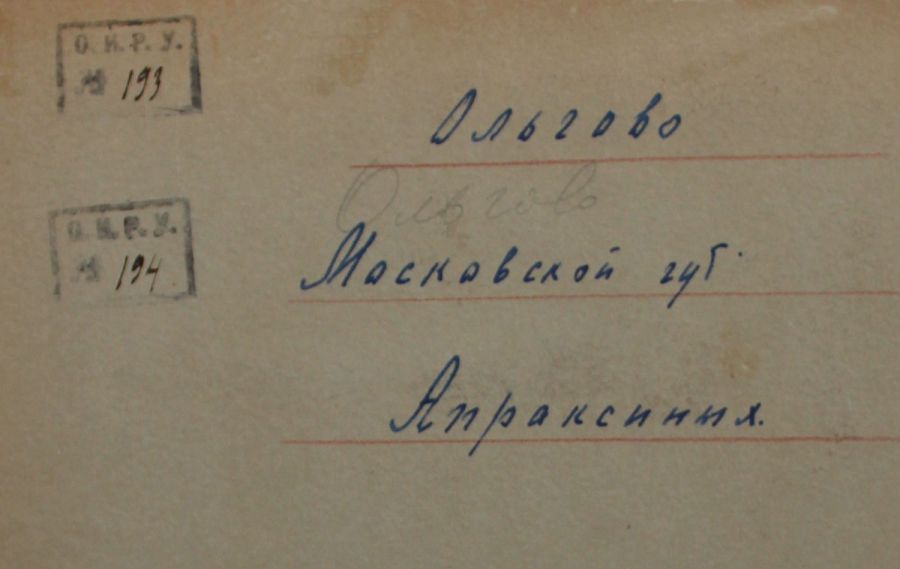 О. И. Р. У.
№ 193
Ольгово
Ольгово
О. И. Р. У.
№ 194
Московской губ.
Апраксиных.